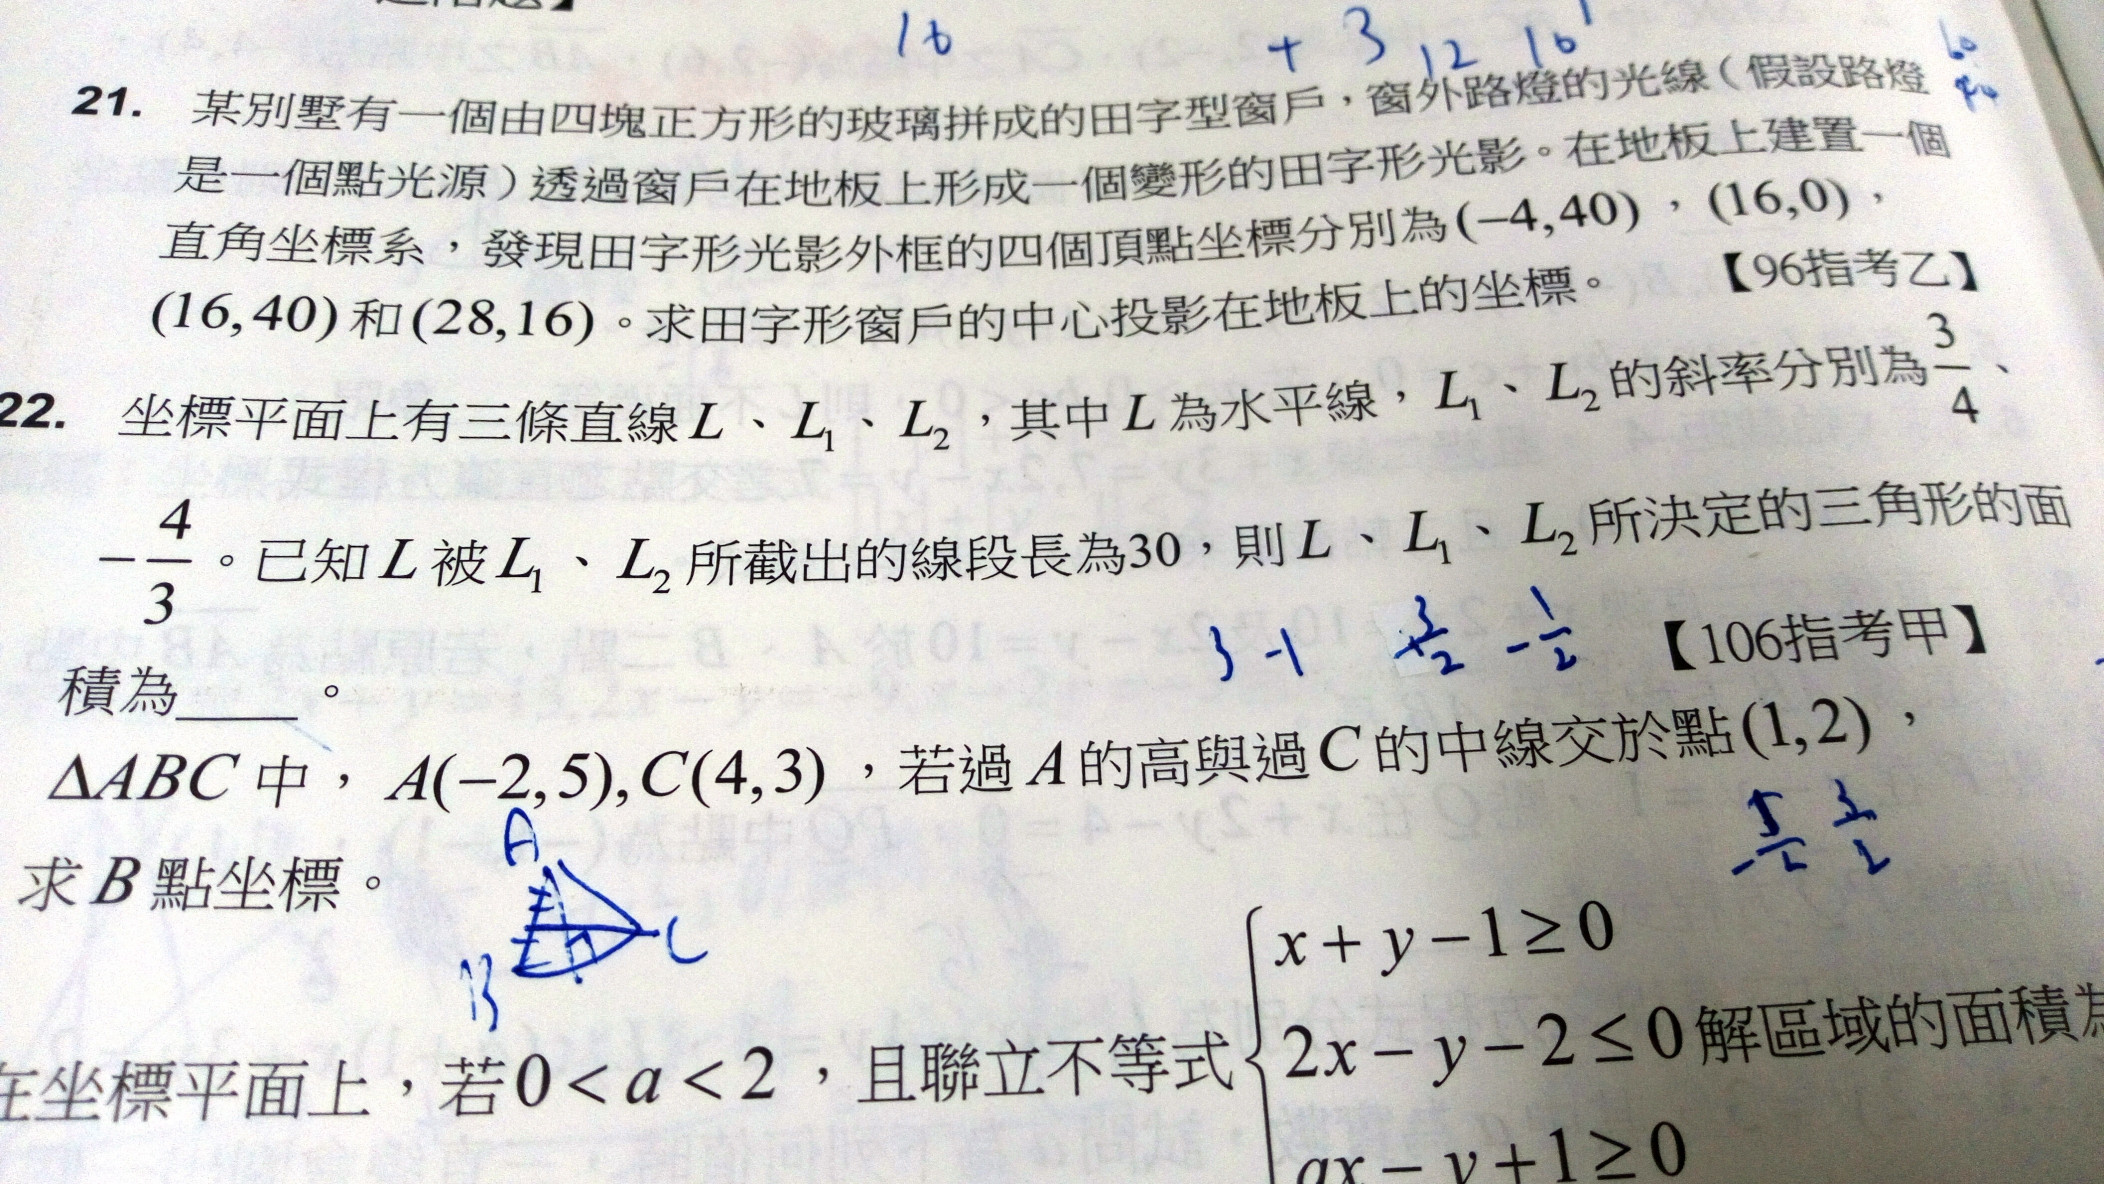 16 + 3 12 16
21. 某別墅有一個由四塊正方形的玻璃拼成的田字型窗戶，窗外路燈的光線（假設路燈
是一個點光源）透過窗戶在地板上形成一個變形的田字形光影。在地板上建置一個
直角坐標系，發現田字形光影外框的四個頂點坐標分別為(−4,40)，(16,0)，
(16,40)和(28,16)。求田字形窗戶的中心投影在地板上的坐標。 【96指考乙】
22. 坐標平面上有三條直線L、L₁、L₂，其中L為水平線，L₁、L₂的斜率分別為3/4、
−4/3。已知L被L₁、L₂所截出的線段長為30，則L、L₁、L₂所決定的三角形的面
積為____。 【106指考甲】
3 -1 3/2 -1/2
ΔABC中，A(−2,5),C(4,3)，若過A的高與過C的中線交於點(1,2)，
求B點坐標。
-5/2 3/2
A
B
C
在坐標平面上，若0<a<2，且聯立不等式
x+y−1≥0
2x−y−2≤0解區域的面積為
ax−y+1≥0